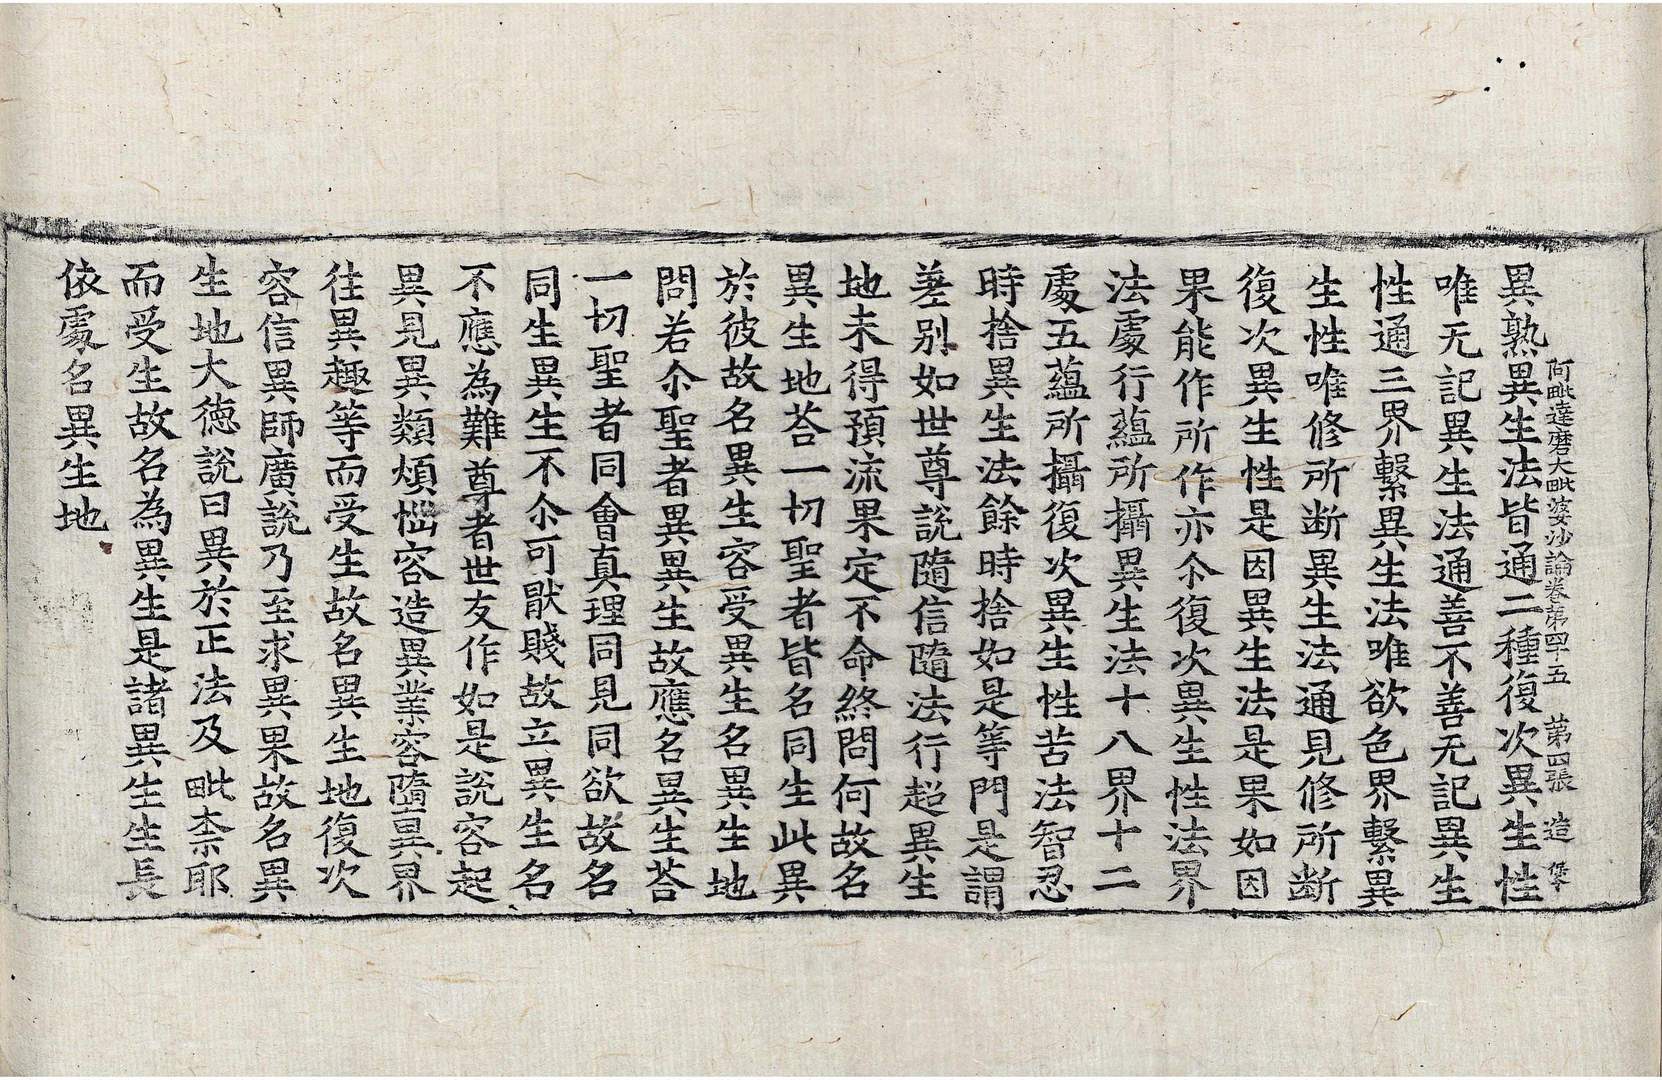 阿毗達磨大毗婆沙論卷第四十五 第四張 造
異熟異生法皆通二種復次異生性
唯无記異生法通善不善无記異生
性通三界繫異生法唯欲色界繫異
生性唯修所断異生法通見修所断
復次異生性是因異生法是果如因
果能作所作亦尒復次異生性法界
法處行蘊所攝異生法十八界十二
處五蘊所攝復次異生性苦法智忍
時捨異生法餘時捨如是等門是謂
差別如世尊說隨信隨法行超異生
地未得預流果定不命終問何故名
異生地荅一切聖者皆名同生此異
於彼故名異生容受異生名異生地
問若尒聖者異異生故應名異生荅
一切聖者同會真理同見同欲故名
同生異生不尒可猒賤故立異生名
不應為難尊者世友作如是說容起
異見異類煩惱容造異業容隨異界
往異趣等而受生故名異生地復次
容信異師廣說乃至求異果故名異
生地大徳說曰異於正法及毗柰耶
而受生故名為異生是諸異生生長
依處名異生地